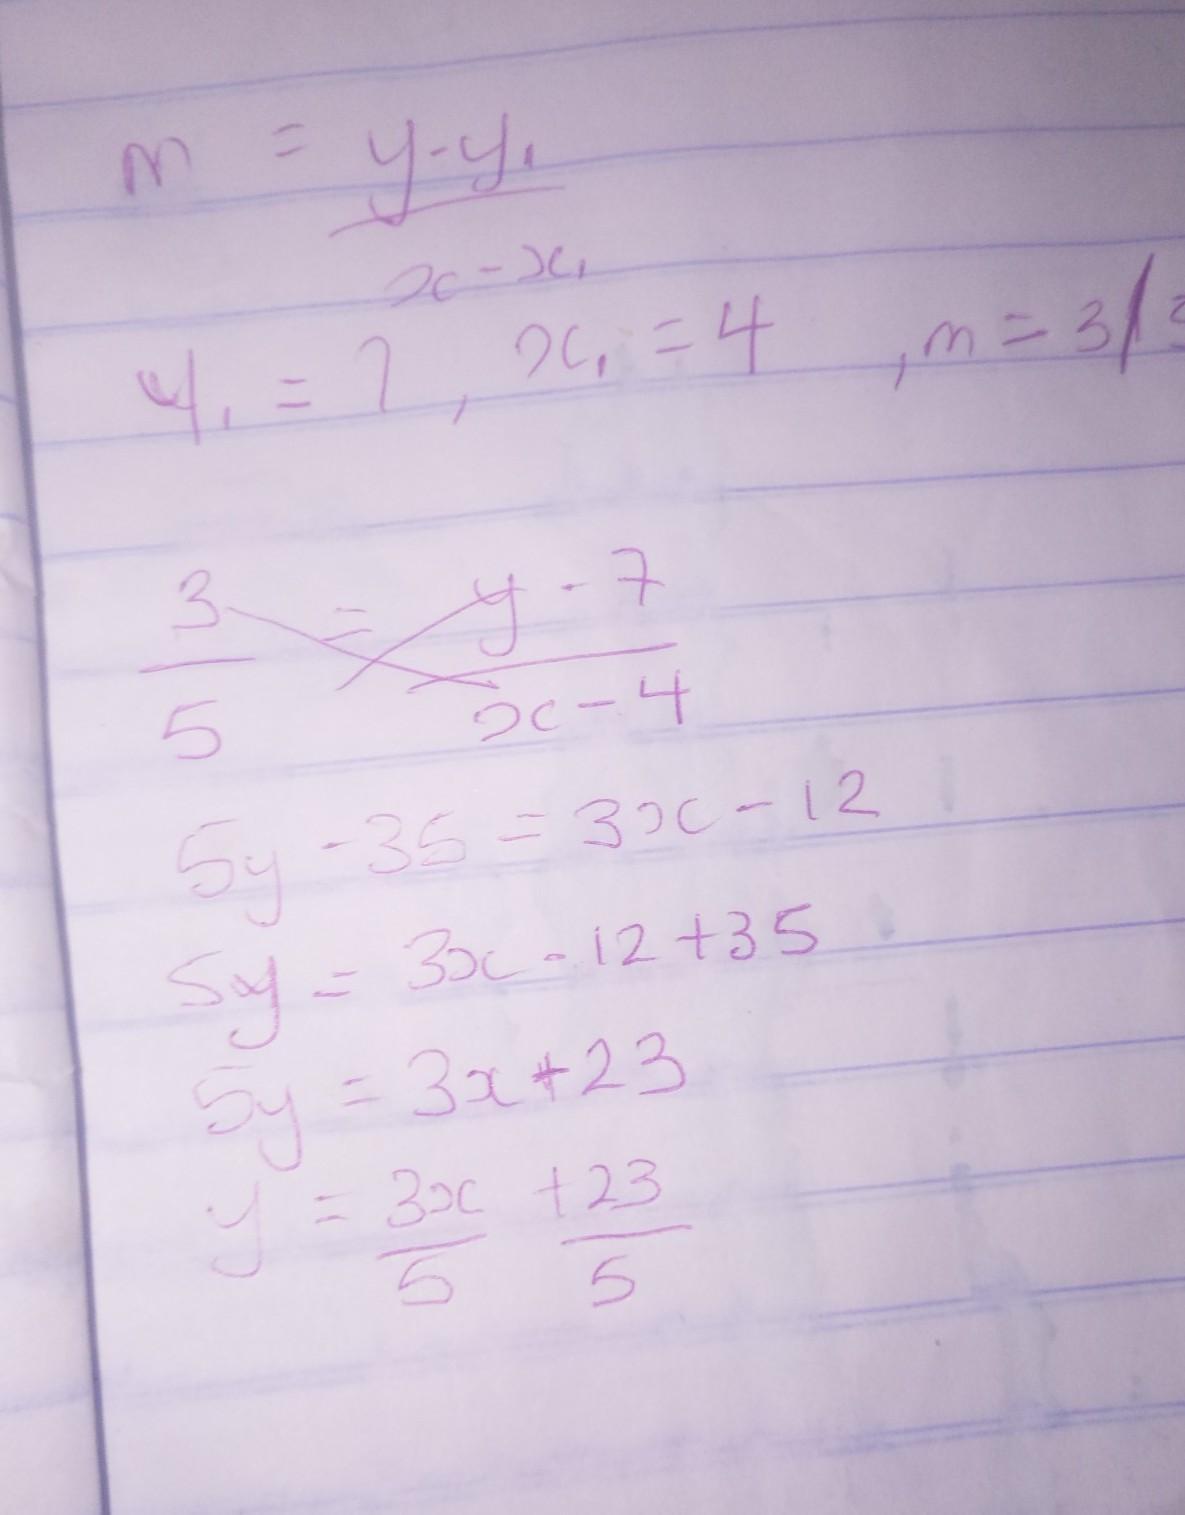 m = y-y₁
x-x₁
y₁ = 7, x₁ = 4, m = 3/
3 = y - 7
5 x - 4
5y - 35 = 3x - 12
5y = 3x - 12 + 35
5y = 3x + 23
y = 3x + 23
5 5